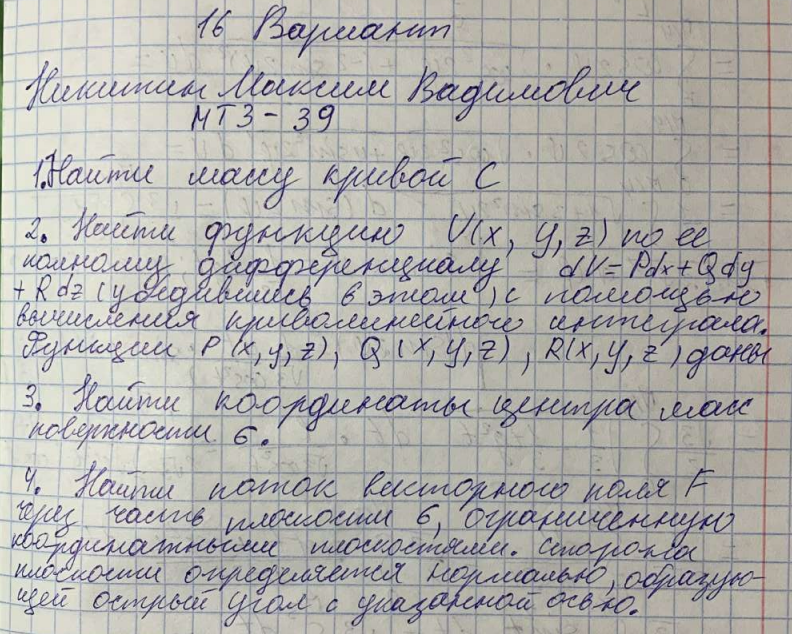 16 Вариант
Никитин Максим Вадимович
МТЗ - 39
1. Найти массу кривой С
2. Найти функцию U(x, y, z) по ее
полному дифференциалу dU = Pdx + Qdy
+ R dz (убедившись в этом) с помощью
вычисления криволинейного интеграла.
Функции P(x, y, z), Q(x, y, z), R(x, y, z) даны
3. Найти координаты центра масс
поверхности б.
4. Найти поток векторного поля F
через часть плоскости б, ограниченную
координатными плоскостями. Сторона
плоскости определяется нормалью, образую-
щей острый угол с указанной осью.